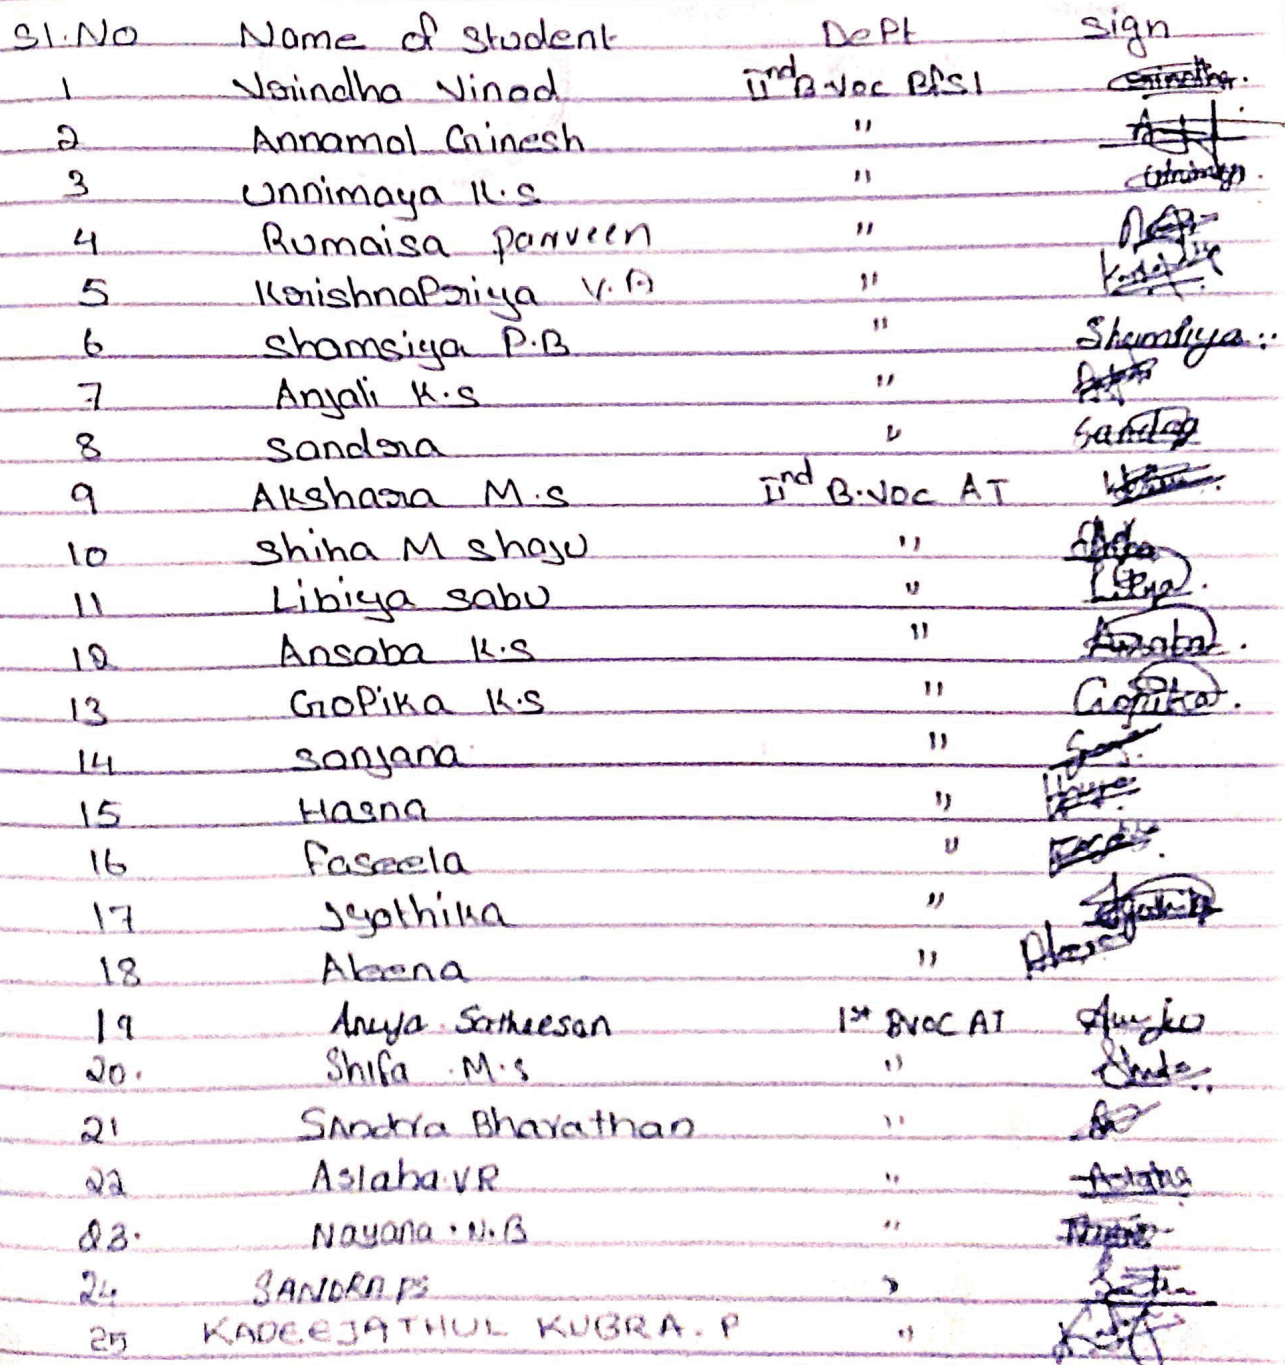 Sl.No Name of Student Dept Sign
1 Vrindha Vinod IInd B.Voc BFSI
2 Annamol Ginesh "
3 Unnimaya K.S "
4 Rumaisa Parveen "
5 KrishnaPriya V.A "
6 Shamsiya P.B " Shamsiya
7 Anjali K.S "
8 Sandra " Sandra
9 Akshara M.S IInd B.Voc AT
10 Shiha M Shaju "
11 Libiya Sabu " Libiya
12 Ansaba K.S " Ansaba
13 GoPika K.S " Gopika
14 Sanjana "
15 Hasna "
16 Faseela "
17 Jyothika " Jyothika
18 Aleena "
19 Anuja Satheesan 1st BVOC AT
20. Shifa M.S "
21 SAndra Bharathan "
22 Aslaha VR " Aslaha
23. Nayana . N.B "
24 SANDRA PS "
25 KADEEJATHUL KUBRA. P "